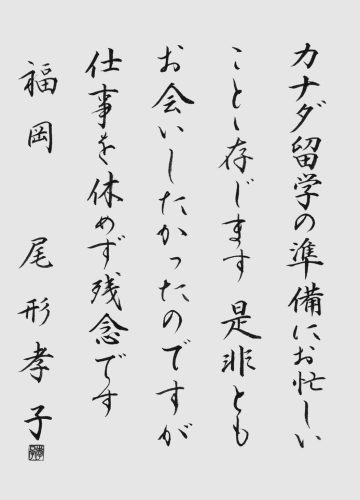 カナダ留学の準備にお忙しい
ことゝ存じます 是非とも
お会いしたかったのですが
仕事を休めず残念です
福岡 尾形孝子